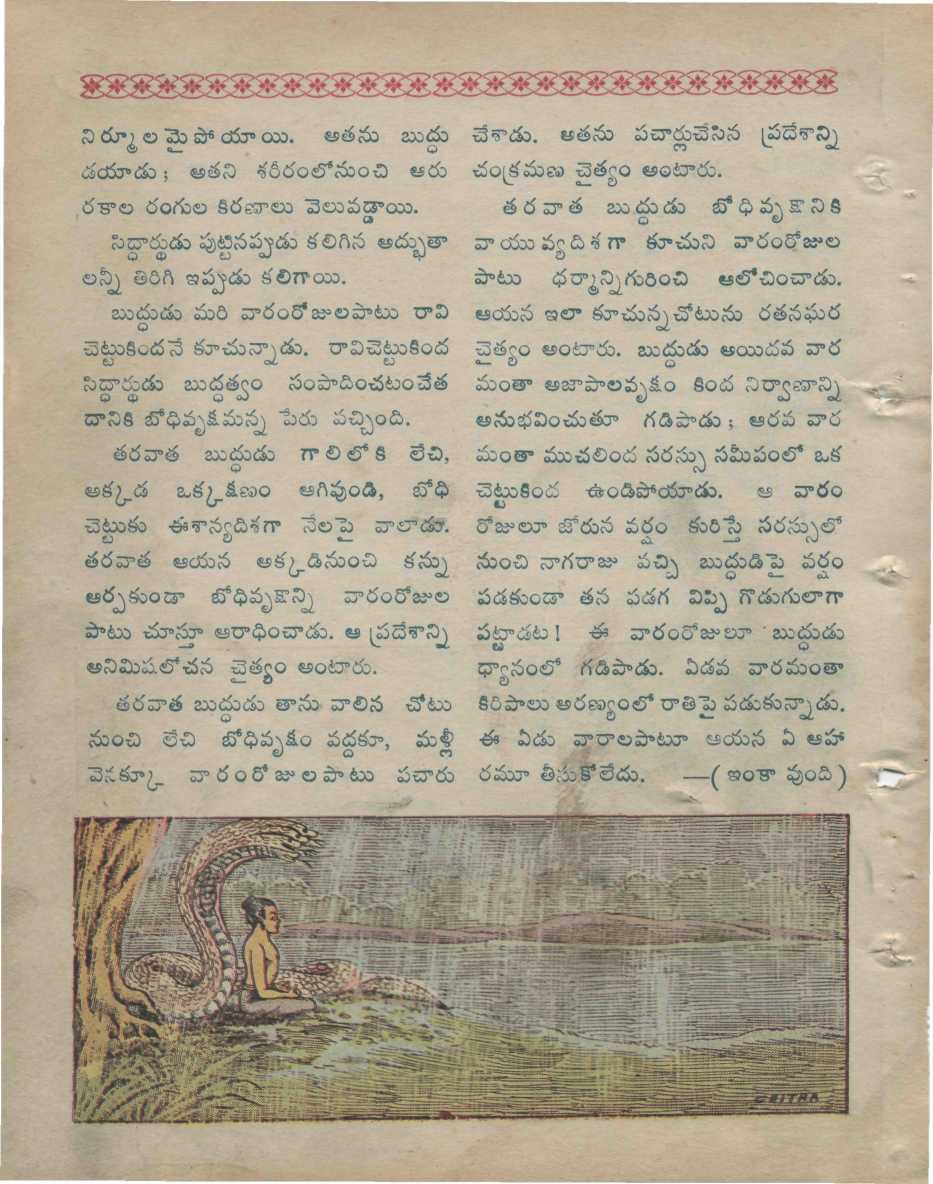 నిర్మూలమైపోయాయి. అతను బుద్ధు
డయాడు; అతని శరీరంలోనుంచి ఆరు
రకాల రంగుల కిరణాలు వెలువడ్డాయి.
సిద్ధార్థుడు పుట్టినప్పుడు కలిగిన అద్భుతా
లన్నీ తిరిగి ఇప్పుడు కలిగాయి.
బుద్ధుడు మరి వారంరోజులపాటు రావి
చెట్టుకిందనే కూచున్నాడు. రావిచెట్టుకింద
సిద్ధార్థుడు బుద్ధత్వం సంపాదించటంచేత
దానికి బోధివృక్షమన్న పేరు వచ్చింది.
తరవాత బుద్ధుడు గాలిలోకి లేచి,
అక్కడ ఒక్కక్షణం ఆగివుండి, బోధి
చెట్టుకు ఈశాన్యదిశగా నేలపై వాలాడు.
తరవాత ఆయన అక్కడినుంచి కన్ను
ఆర్పకుండా బోధివృక్షాన్ని వారంరోజుల
పాటు చూస్తూ ఆరాధించాడు. ఆ ప్రదేశాన్ని
అనిమిషలోచన చైత్యం అంటారు.
తరవాత బుద్ధుడు తాను వాలిన చోటు
నుంచి లేచి బోధివృక్షం వద్దకూ, మళ్లీ
వెనక్కూ వారంరోజులపాటు పచారు
చేశాడు. అతను పచార్లుచేసిన ప్రదేశాన్ని
చంక్రమణ చైత్యం అంటారు.
తరవాత బుద్ధుడు బోధివృక్షానికి
వాయువ్యదిశగా కూచుని వారంరోజుల
పాటు ధర్మాన్నిగురించి ఆలోచించాడు.
ఆయన ఇలా కూచున్నచోటును రతనఘర
చైత్యం అంటారు. బుద్ధుడు అయిదవ వార
మంతా అజాపాలవృక్షం కింద నిర్వాణాన్ని
అనుభవించుతూ గడిపాడు; ఆరవ వార
మంతా ముచలింద సరస్సు సమీపంలో ఒక
చెట్టుకింద ఉండిపోయాడు. ఆ వారం
రోజులూ జోరున వర్షం కురిస్తే సరస్సులో
నుంచి నాగరాజు వచ్చి బుద్ధుడిపై వర్షం
పడకుండా తన పడగ విప్పి గొడుగులాగా
పట్టాడట! ఈ వారంరోజులూ బుద్ధుడు
ధ్యానంలో గడిపాడు. ఏడవ వారమంతా
కిరిపాలు అరణ్యంలో రాతిపై పడుకున్నాడు.
ఈ ఏడు వారాలపాటూ ఆయన ఏ ఆహా
రమూ తీసుకోలేదు. —(ఇంకా వుంది)
CHITRA